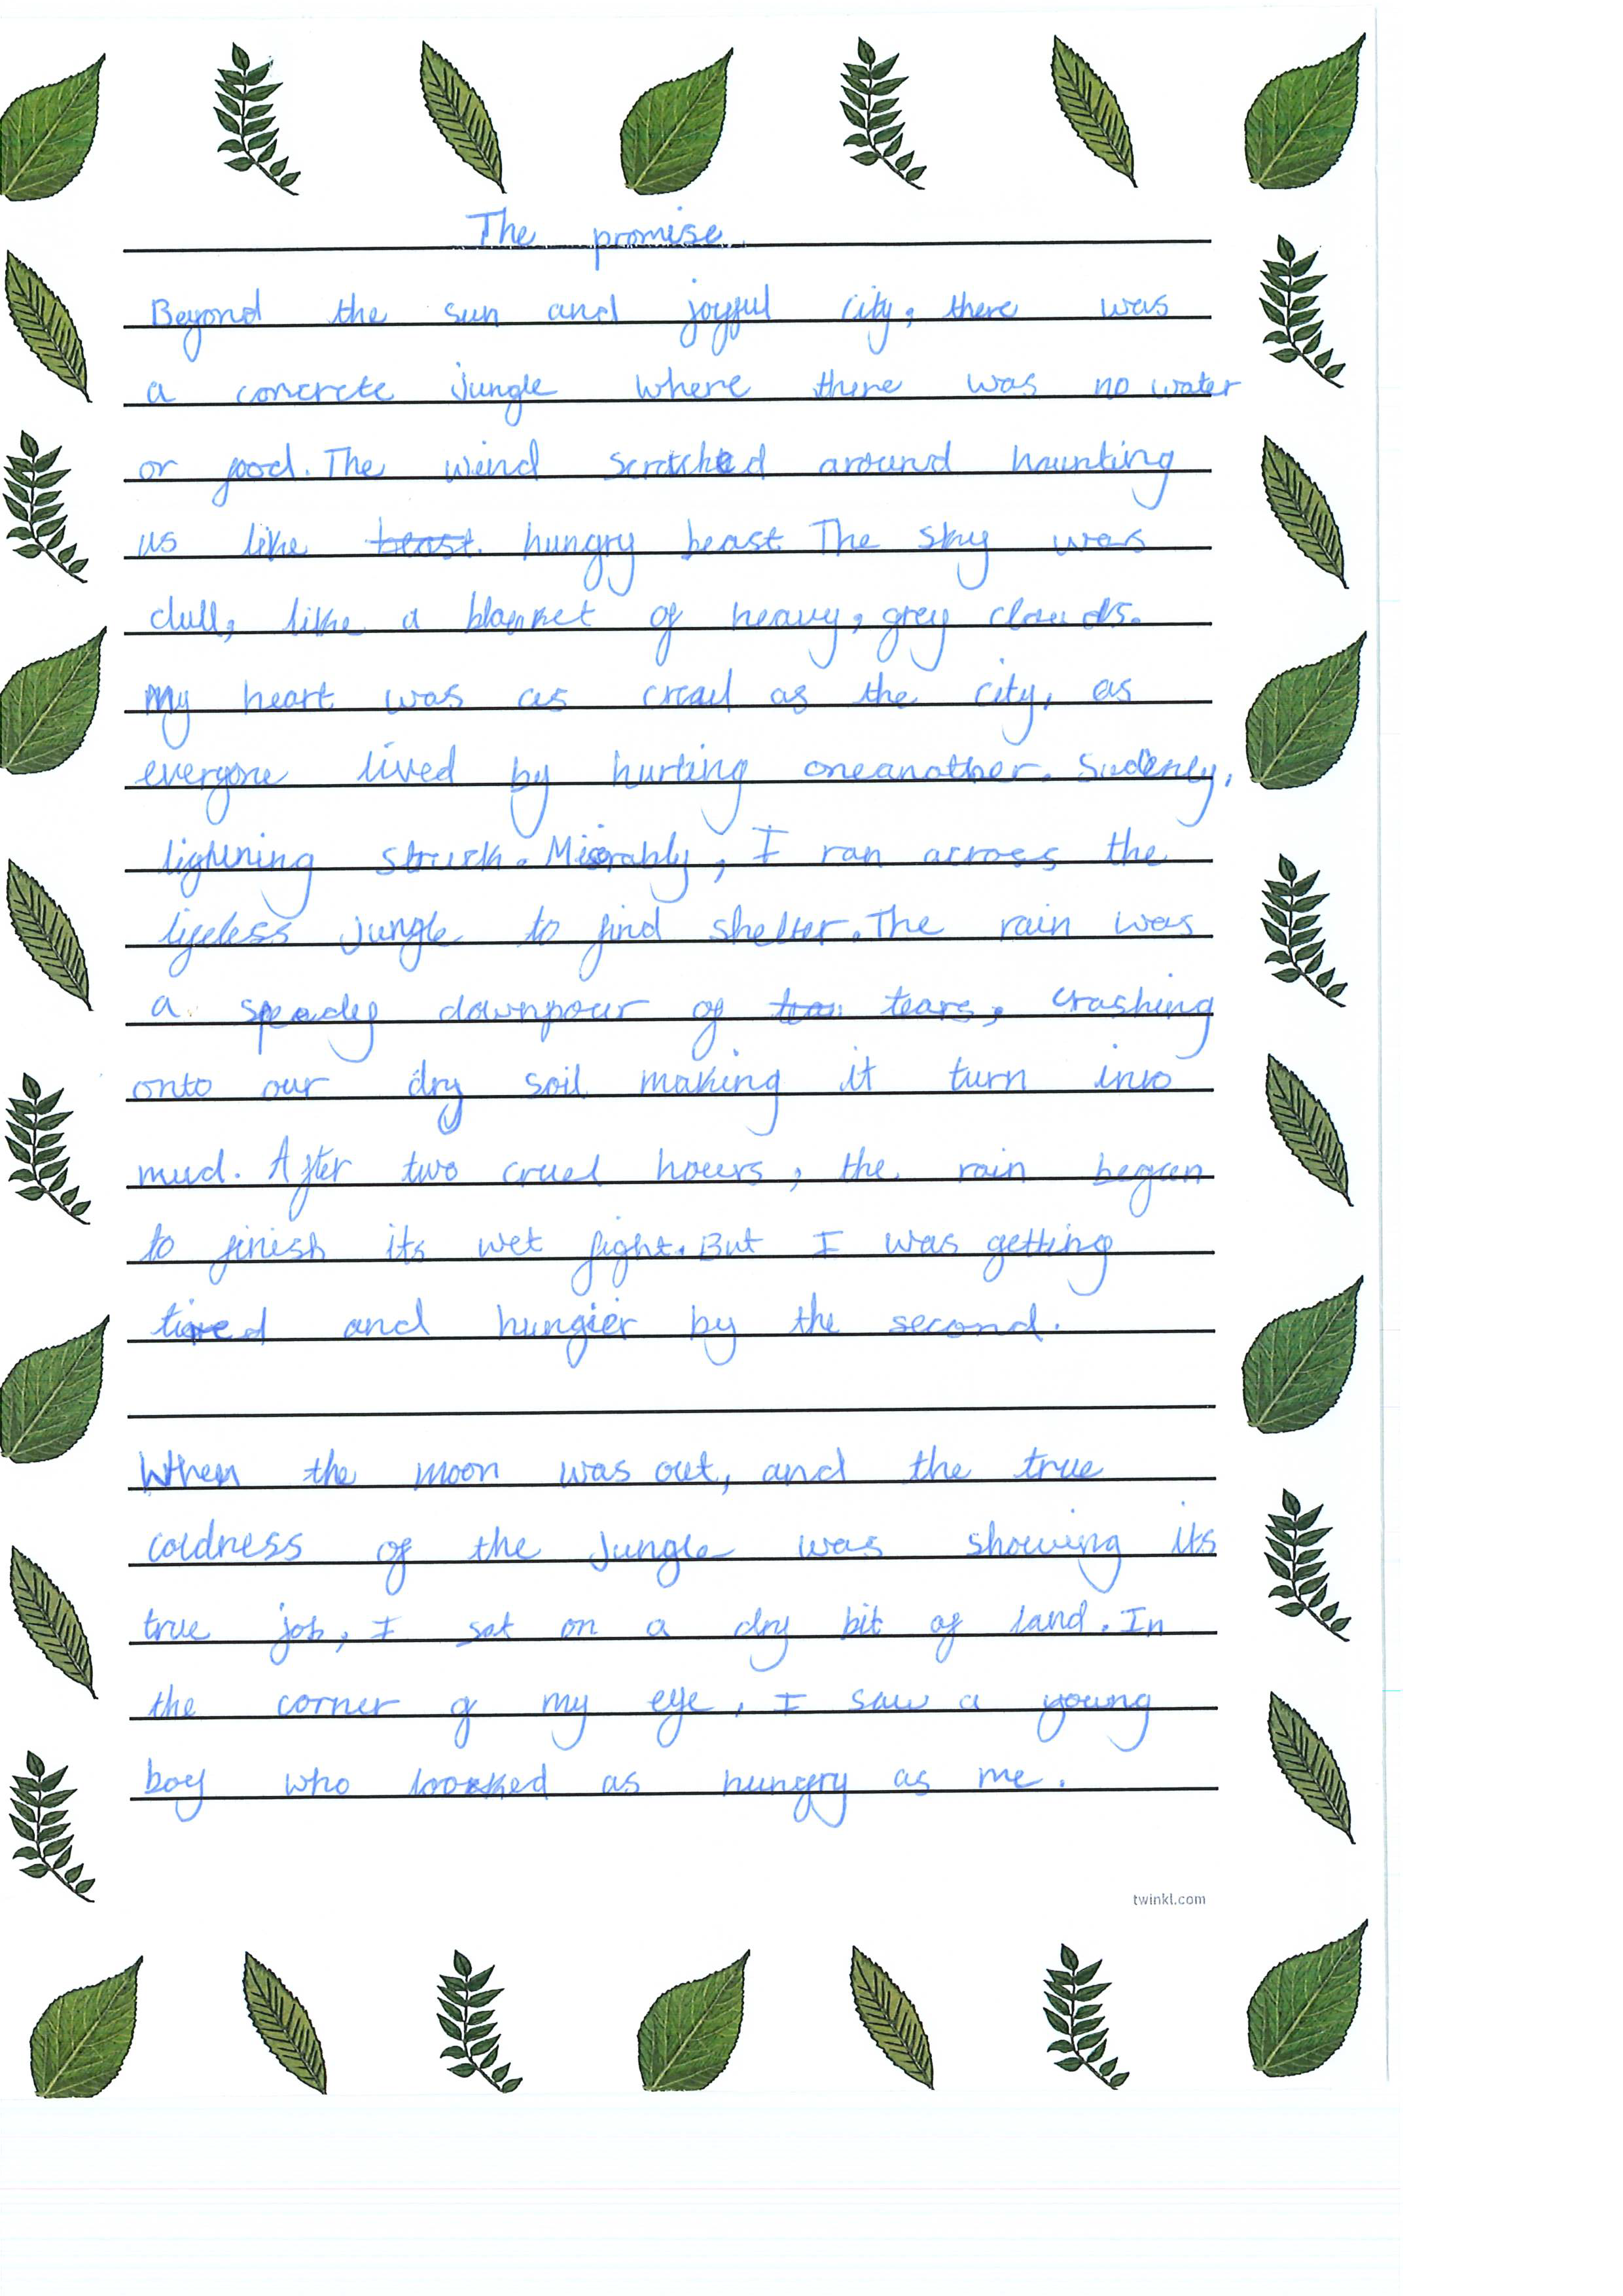 The promise.
Beyond the sun and joyful city, there was
a concrete jungle where there was no water
or food. The wind scratched around haunting
us like beast. hungry beast. The sky was
dull, like a blanket of heavy, grey clouds.
My heart was as cruel as the city, as
everyone lived by hurting oneanother. Sudenly,
lightning struck. Miserably, I ran across the
lifeless jungle to find shelter. The rain was
a speady downpour of tears, crashing
onto our dry soil making it turn into
mud. After two cruel hours, the rain began
to finish its wet fight. But I was getting
tired and hungier by the second.
When the moon was out, and the true
coldness of the jungle was showing its
true job, I sat on a dry bit of land. In
the corner of my eye, I saw a young
boy who looked as hungry as me.
twinkl.com